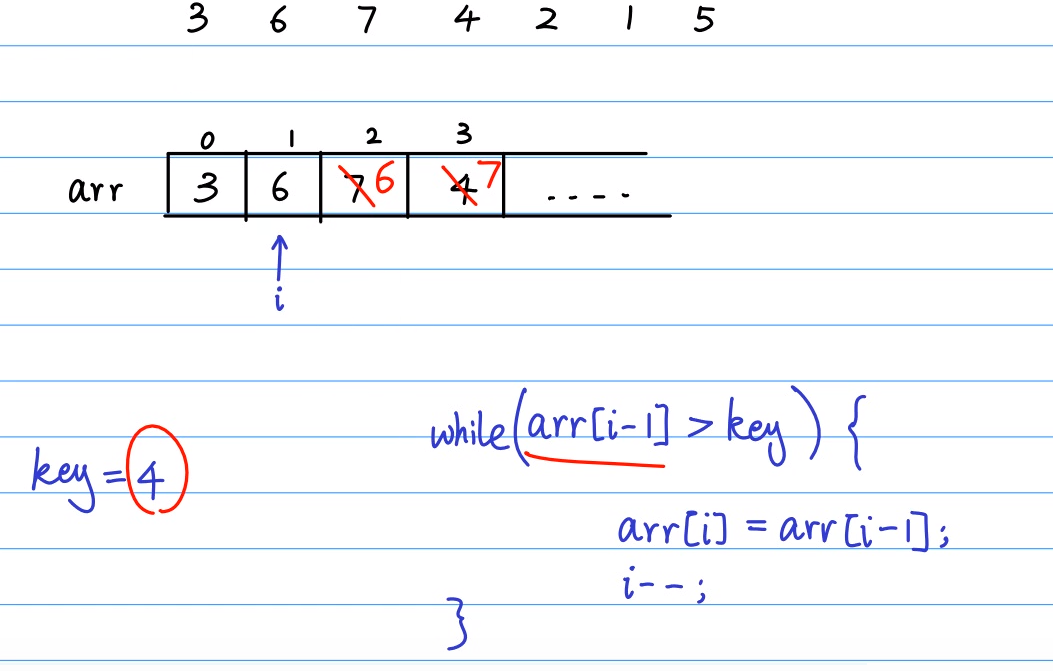 3 6 7 4 2 1 5
0 1 2 3
arr 3 6 7 6 4 7 ....
i
while(arr[i-1] > key) {
key = 4
arr[i] = arr[i-1];
i--;
}